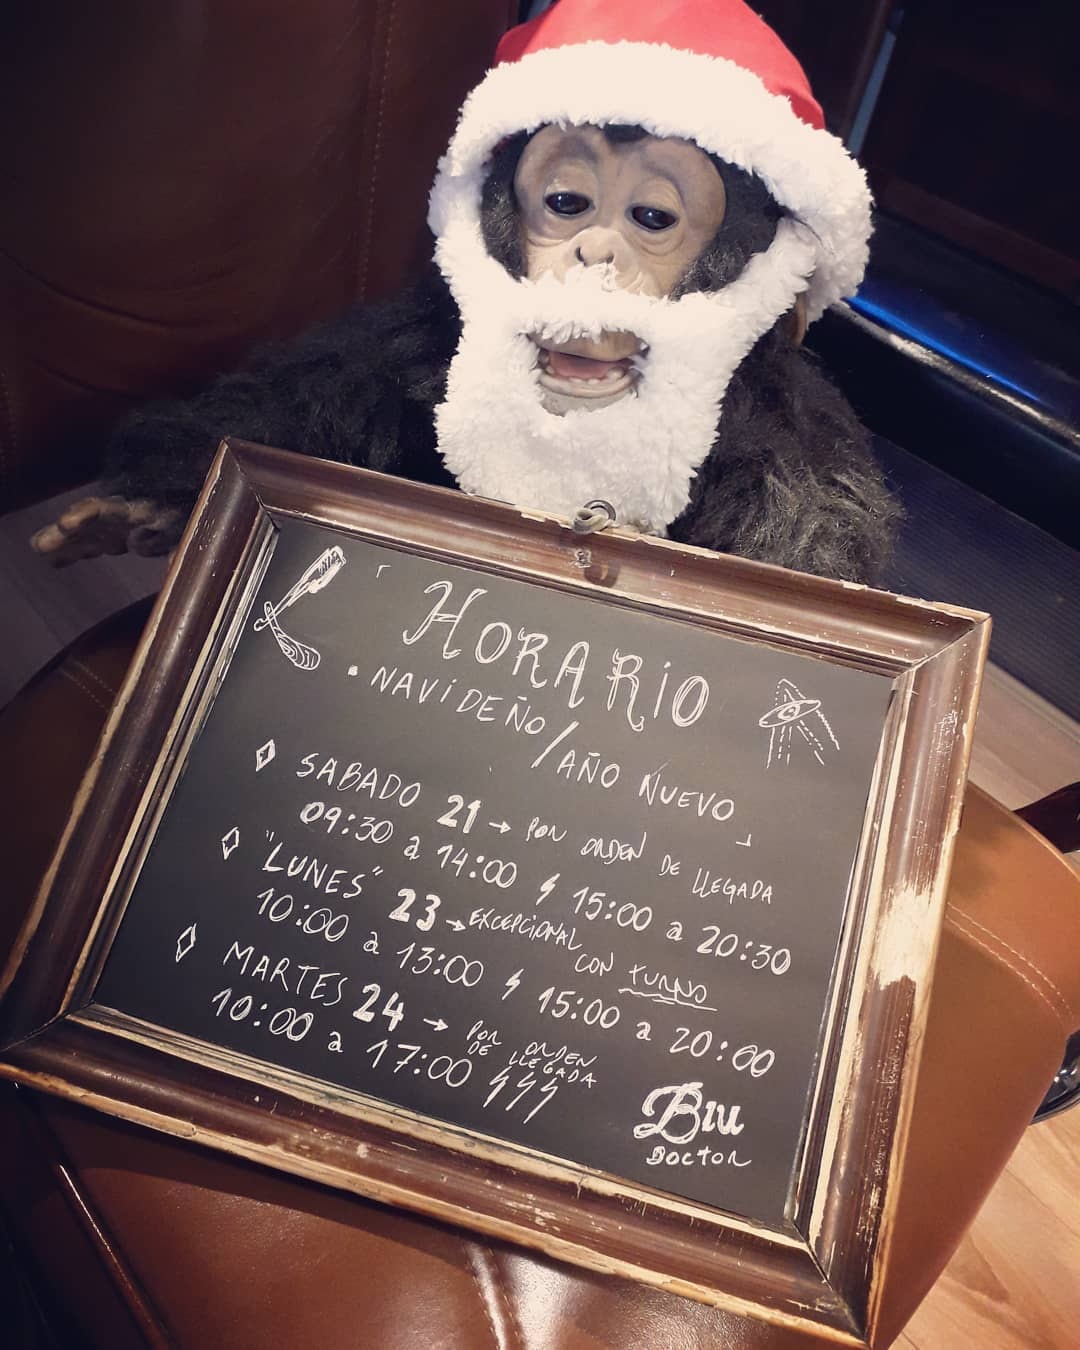 「 HORARiO
• NAViDEÑO/AÑO NUEVO 」
◊ SABADO 21 → POR ORDEN DE LLEGADA
09:30 a 14:00 ϟ 15:00 a 20:30
◊ "LUNES" 23 → EXCEPCIONAL CON TURNO
10:00 a 13:00 ϟ 15:00 a 20:00
◊ MARTES 24 → POR ORDEN DE LLEGADA
10:00 a 17:00 ϟϟϟ
Biu
DOCTOR